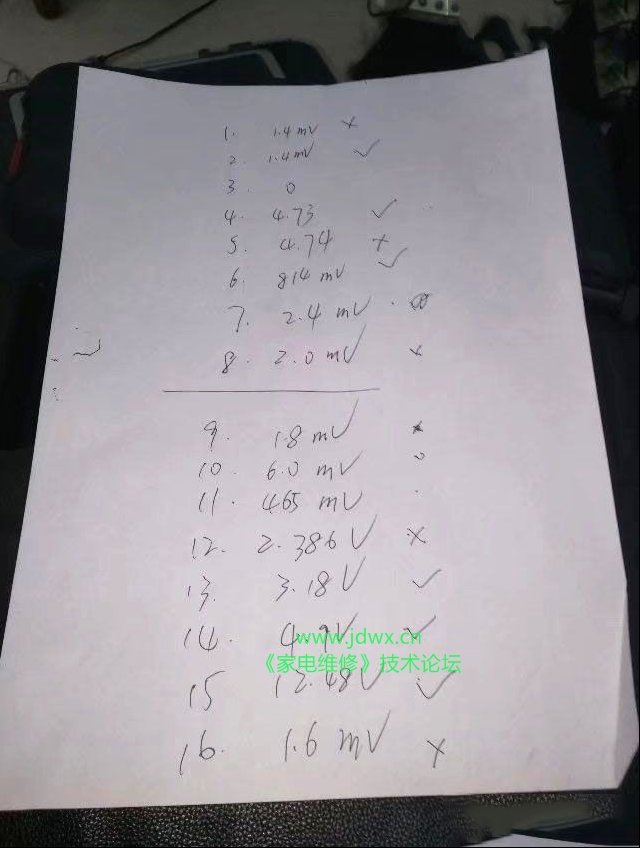 1. 1.4mV ×
2. 1.4mV ✓
3. 0
4. 4.73 ✓
5. 4.74 ×
6. 814 mV ✓
7. 2.4 mV
8. 2.0 mV ×
9. 1.8 mV ×
10. 6.0 mV
11. 465 mV
12. 2.386 V ×
13. 3.18 V ✓
14. 4.9V ✓
www.jdwx.cn
《家电维修》技术论坛
15 12.48V ✓
16. 1.6 mV ×